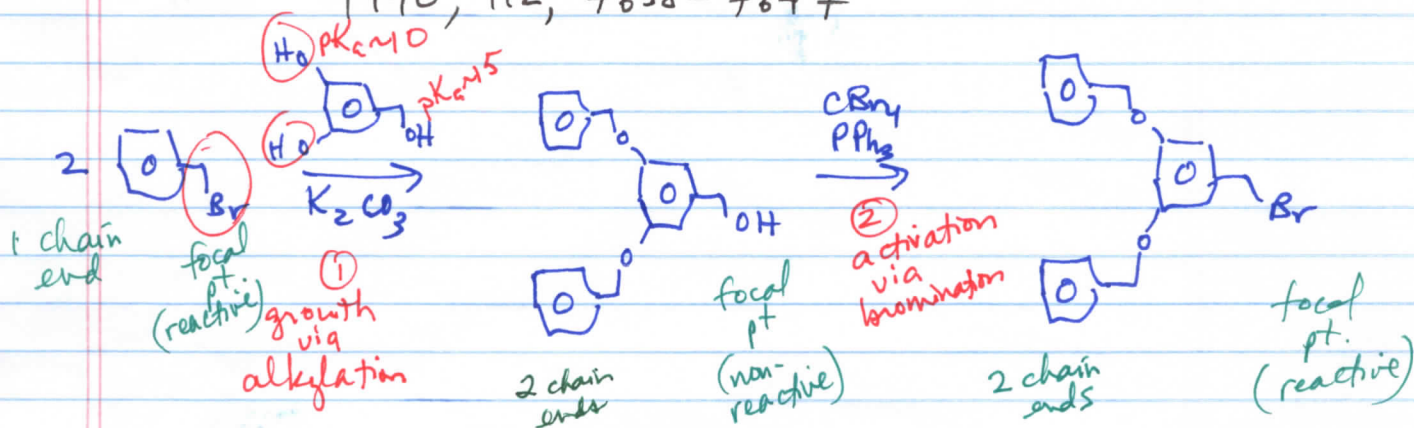 HO pKa~10
pKa~15
HO
OH
2
Br
K2CO3
1 chain
end
focal
pt.
(reactive)
①
growth
via
alkylation
O
O
OH
2 chain
ends
focal
pt
(non-
reactive)
CBr4
PPh3
②
activation
via
bromination
O
O
Br
2 chain
ends
focal
pt.
(reactive)